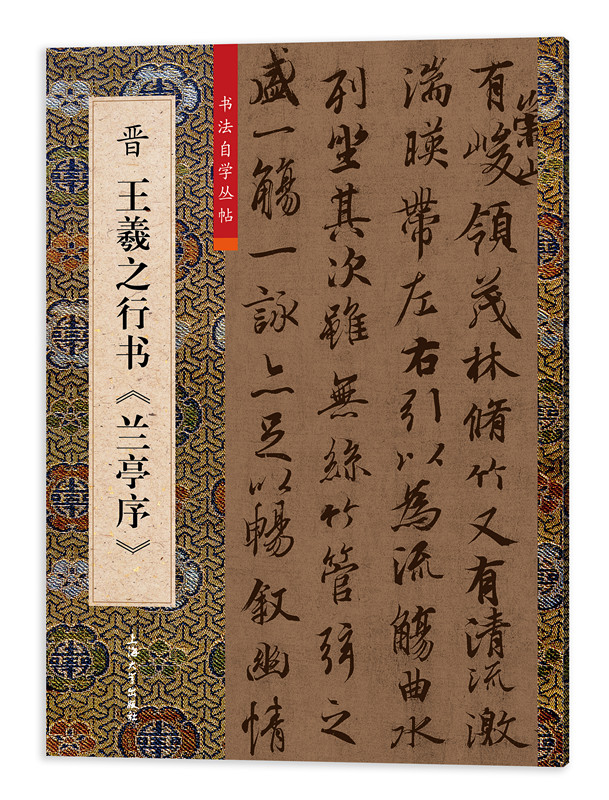 晋 王羲之行书《兰亭序》
书法自学丛帖
上海大学出版社
崇山
有峻領茂林脩竹又有清流激
湍暎帶左右引以為流觴曲水
列坐其次雖無絲竹管弦之
盛一觴一詠亦足以暢敘幽情